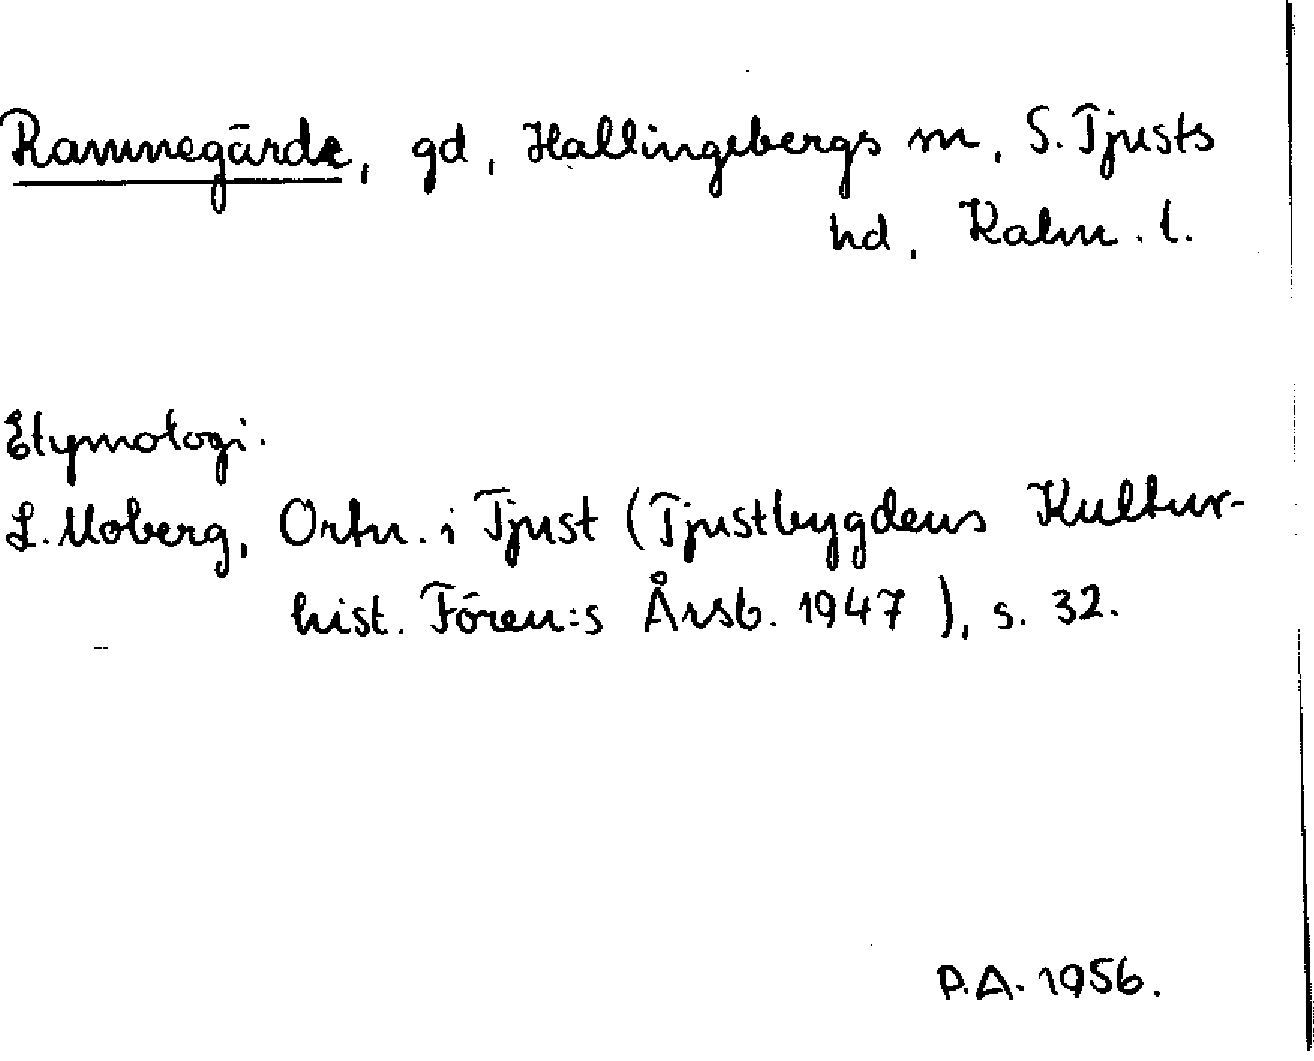 Ramnegärde, gd, Hallingebergs sn, S. Tjusts
hd, Kalm. l.
Etymologi.
L. Moberg, Ortn. i Tjust (Tjustbygdens Kultur-
hist. Fören:s Årsb. 1947), s. 32.
P.A. 1956.